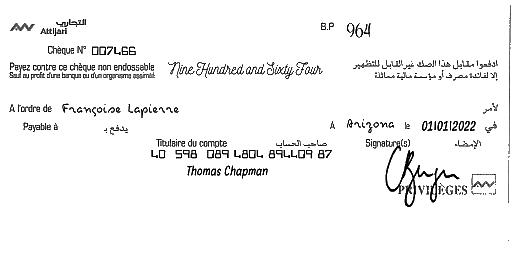 التجاري
Attijari
B.P 964
Chèque N° 007466
Payez contre ce chèque non endossable
Sauf au profit d'une banque ou d'un organisme assimilé
Nine Hundred and Sixty Four
ادفعوا مقابل هذا الصك غير القابل للتظهير
إلا لفائدة مصرف أو مؤسسة مالية مماثلة
A l'ordre de Françoise Lapierre لأمر
Payable à يدفع بـ
A Arizona le 01/01/2022 في
Titulaire du compte صاحب الحساب
Signature(s) الإمضاء
40 598 089 4804 894409 87
Thomas Chapman
PRIVILÈGES